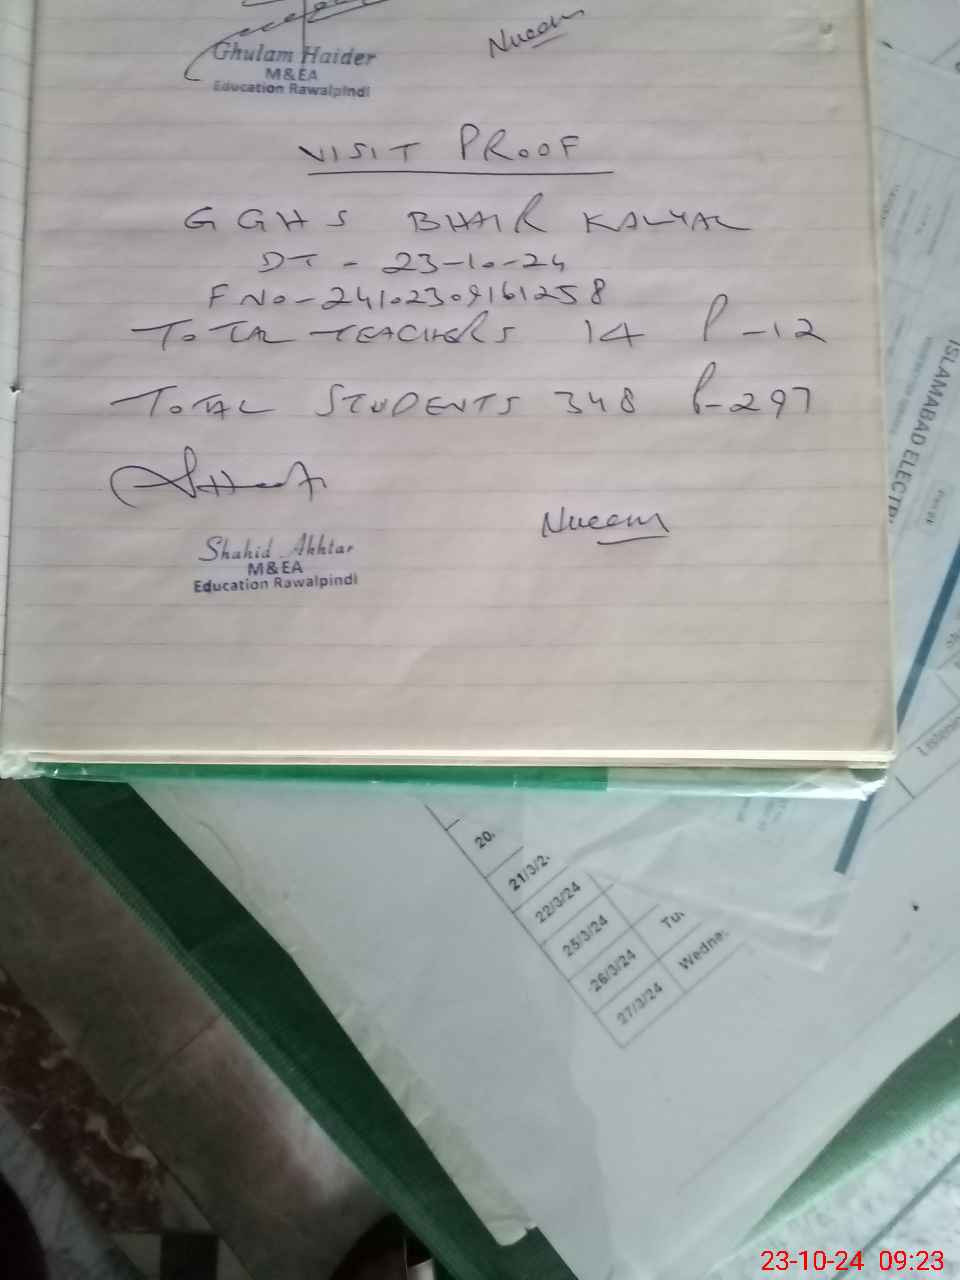 Ghulam Haider
M&EA
Education Rawalpindi
Nueem
VISIT PROOF
GGHS BHAIR KALYAL
DT - 23-10-24
F No-24102309161258
TOTAL TEACHERS 14 P-12
TOTAL STUDENTS 348 P-297
Nueem
Shahid Akhtar
M&EA
Education Rawalpindi
ISLAMABAD ELECTR
Listenin
20.
21/3/2
22/3/24
25/3/24
26/3/24 Tu
27/3/24 Wedne
23-10-24 09:23